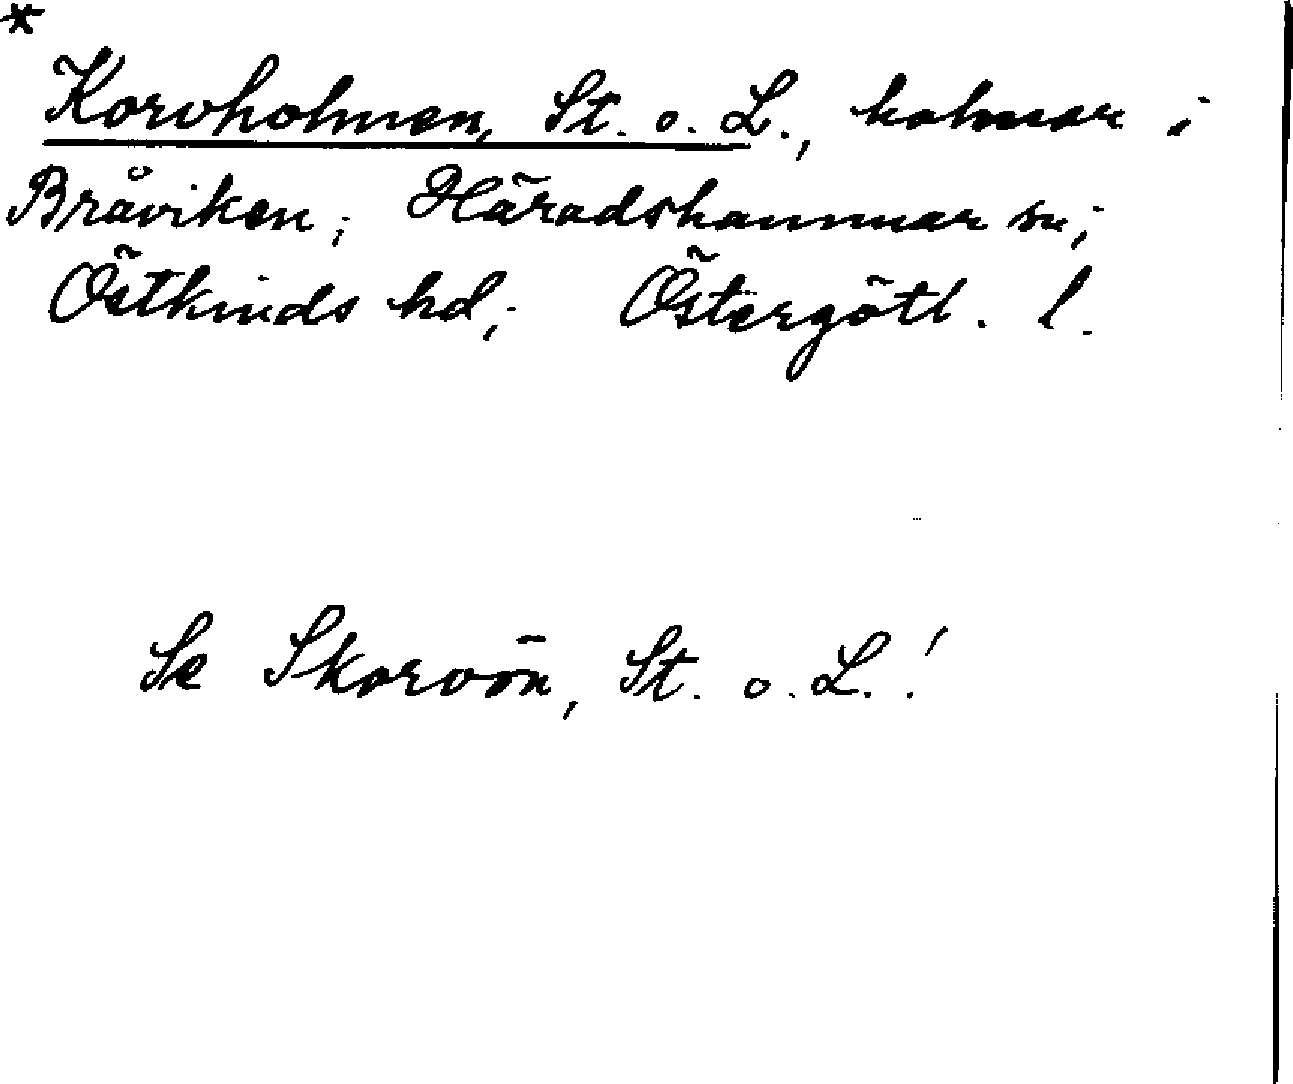 *
Korvholmen, St. o. L., holmar i
Bråviken; Häradshammar sn;
Östkinds hd; Östergötl. l.
Se Skorvön, St. o. L.!